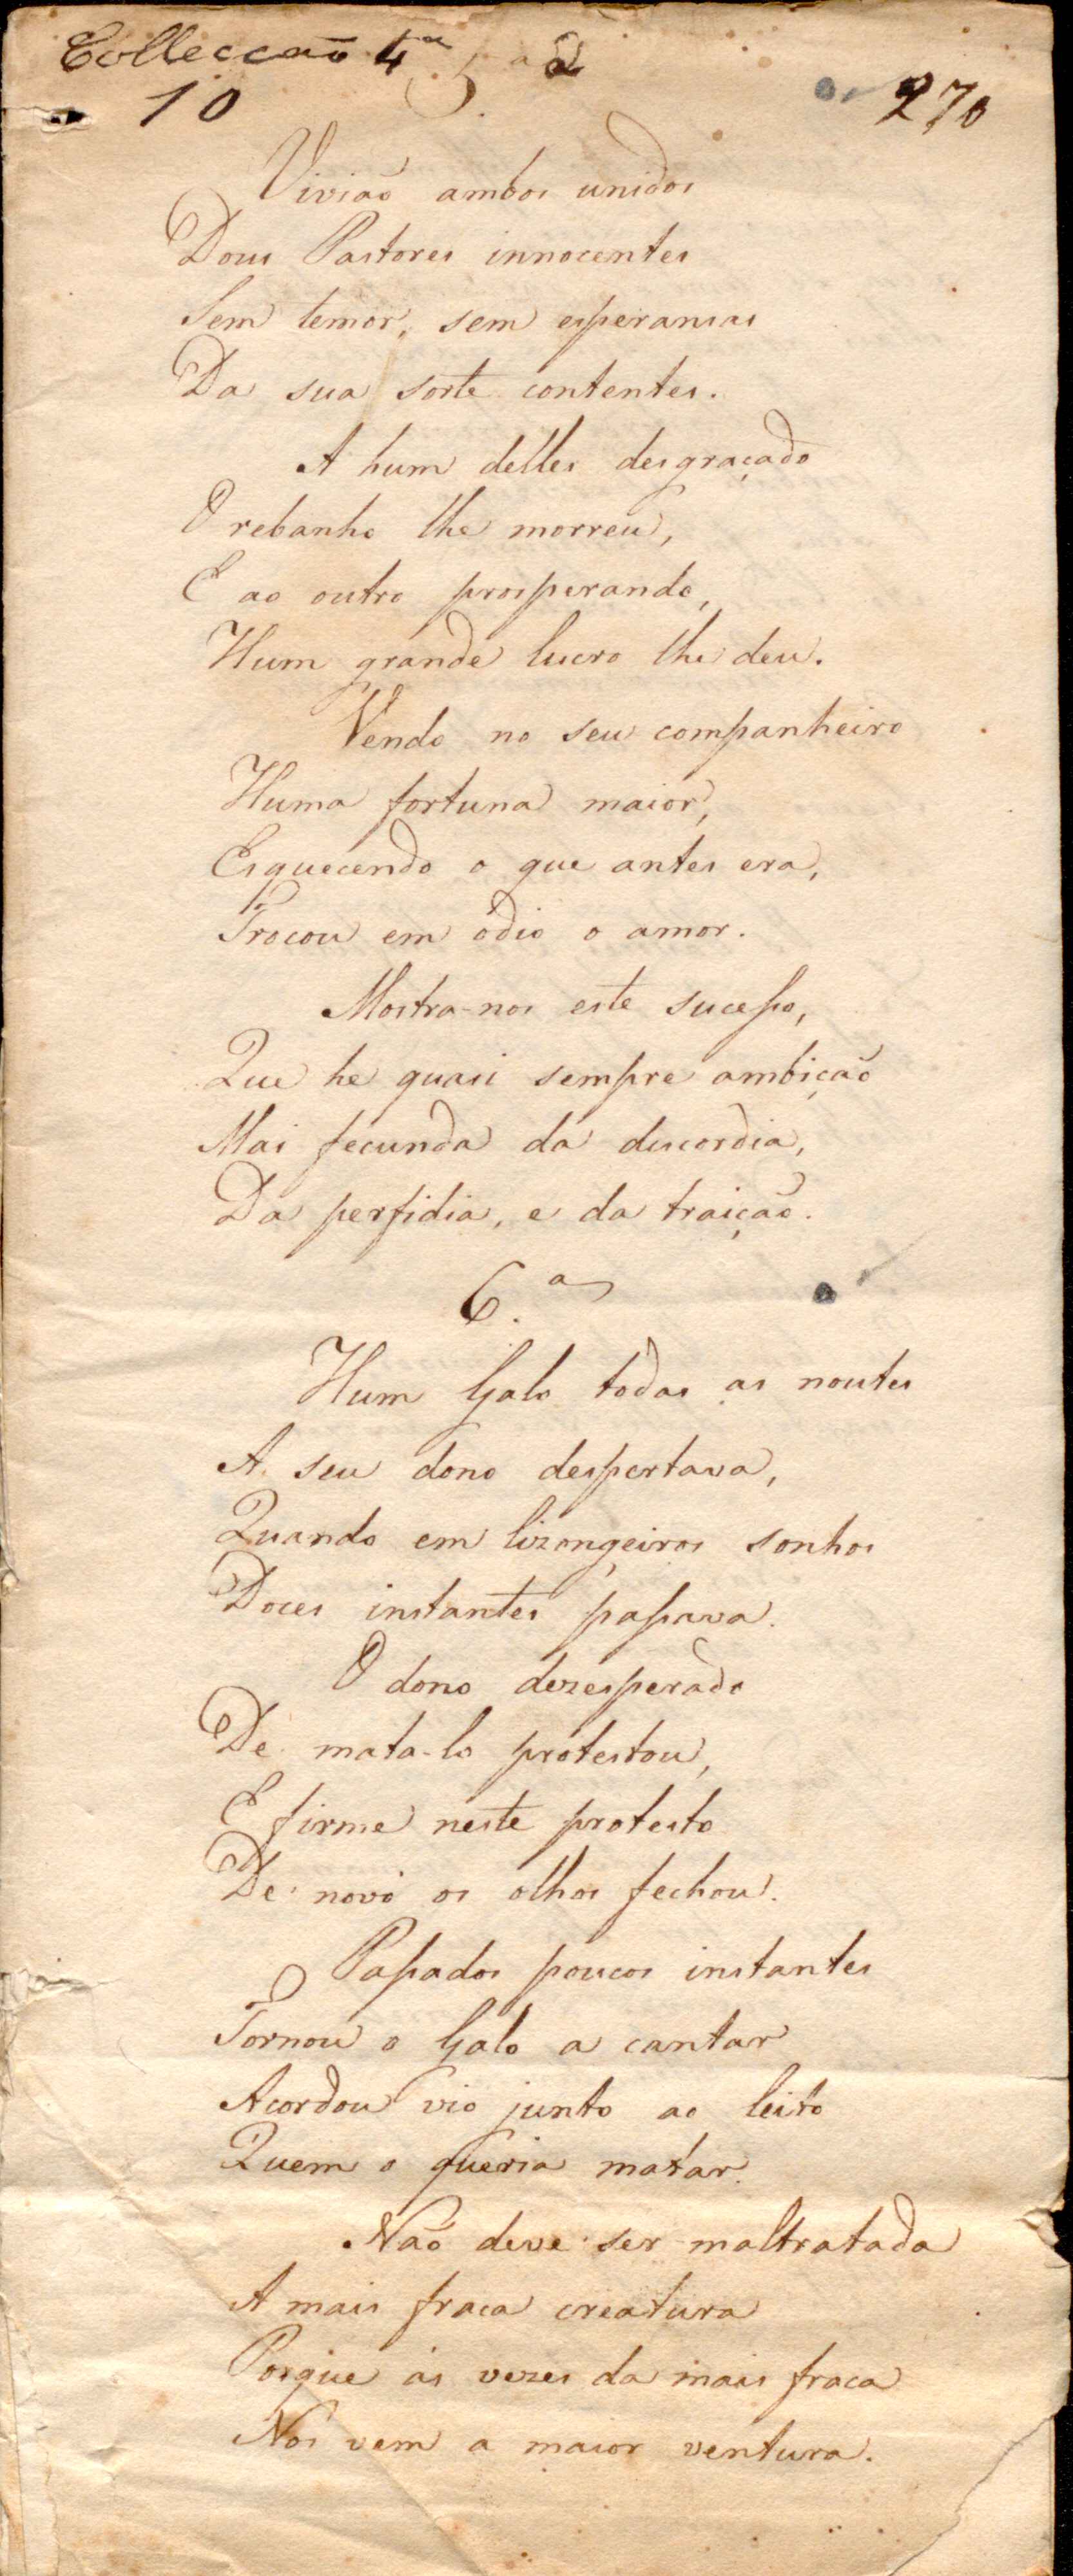 Collecção 4ª 5.ª 2
10 270
Vivião ambos unidos
Dous Pastores innocentes
Sem temor, sem esperansas
Da sua sorte contentes.
A hum delles desgraçado
O rebanho lhe morreu,
E ao outro prosperando,
Hum grande lucro lhe deu.
Vendo no seu companheiro
Huma fortuna maior,
Esquecendo o que antes era,
Trocou em ódio o amor.
Mostra-nos este sucesso,
Que he quasi sempre ambição
Mai fecunda da discordia,
Da perfidia, e da traição.
6.ª
Hum Galo todas as noutes
A seu dono despertava,
Quando em lizongeiros sonhos
Doces instantes passava.
O dono dezesperado
De mata-lo protestou,
E firme neste protesto
De novo os olhos fechou.
Passados poucos instantes
Tornou o Galo a cantar
Acordou vio junto ao leito
Quem o queria matar.
Não deve ser maltratada
A mais fraca creatura
Porque ás vezes da mais fraca
Nos vem a maior ventura.